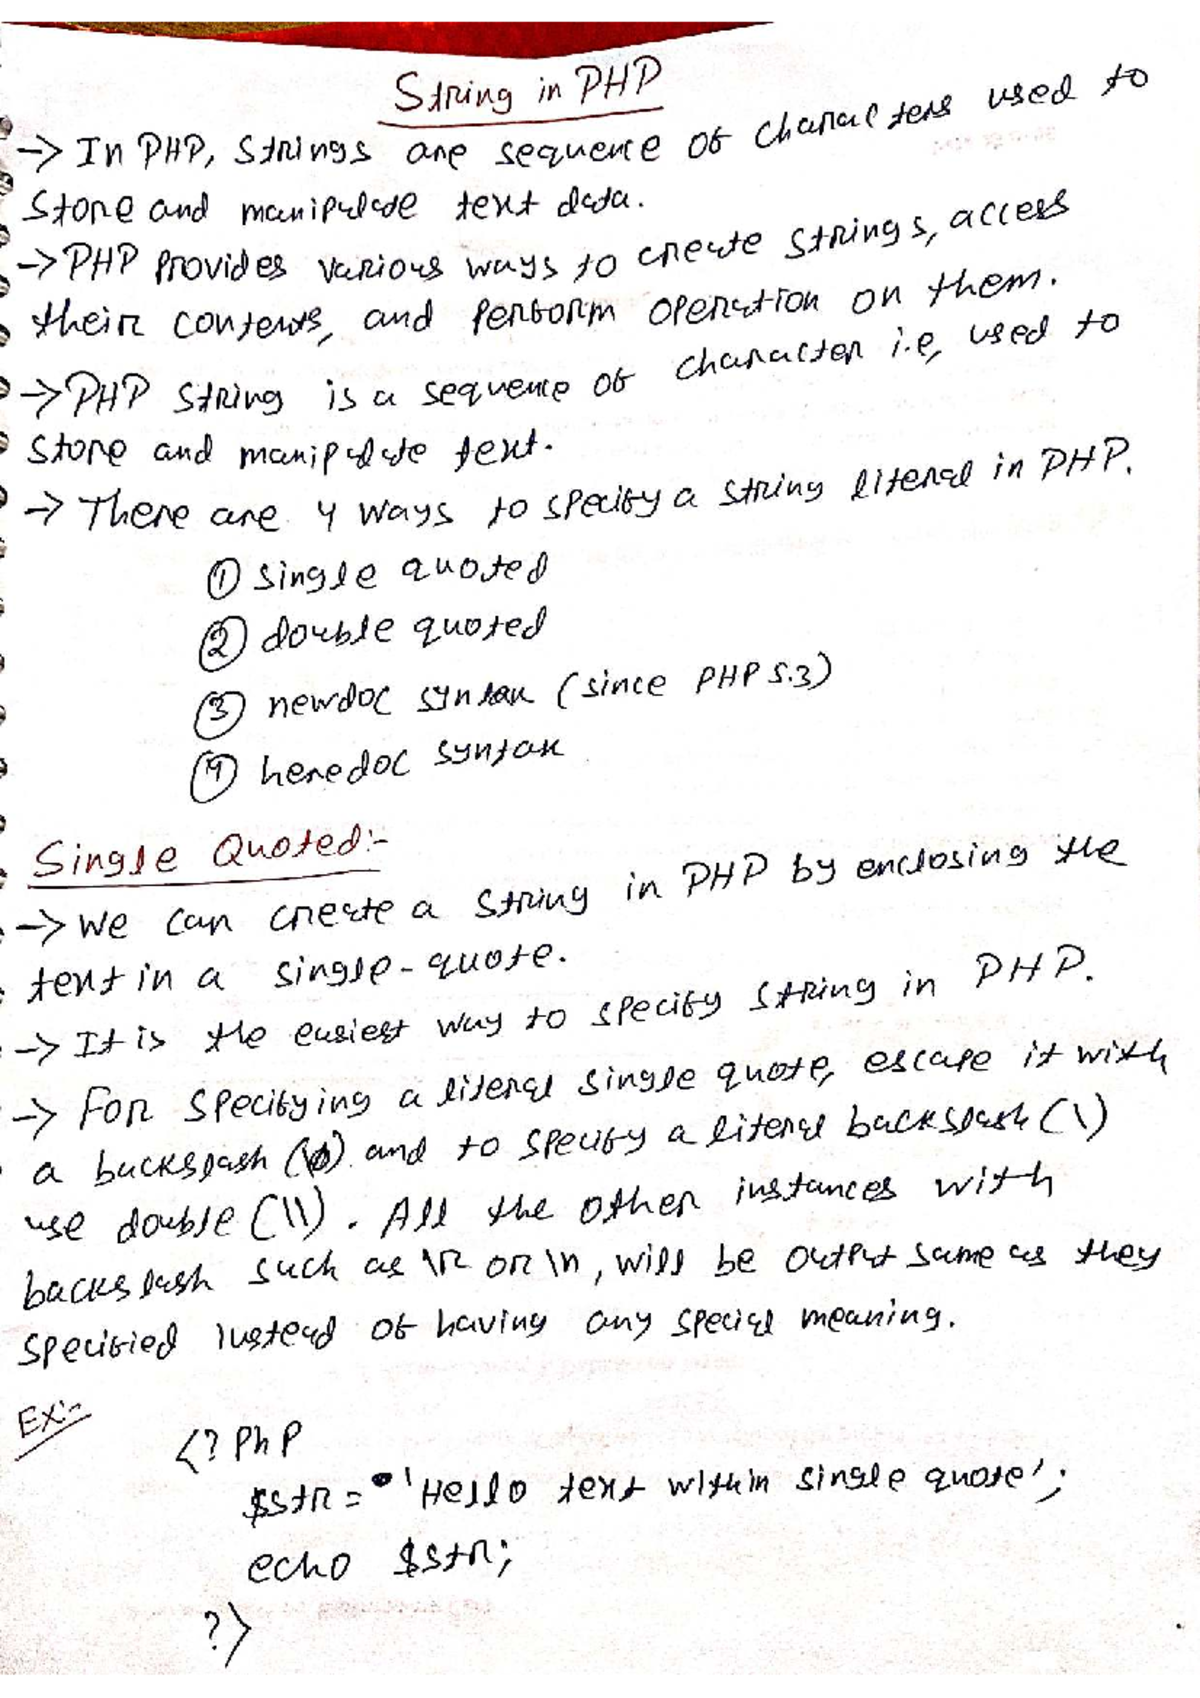 String in PHP
-> In PHP, Strings are sequence of characters used to
Store and manipulate text data.
-> PHP Provides various ways to create strings, access
their contents, and perform operation on them.
-> PHP String is a sequence of character i.e, used to
store and manipulate text.
-> There are 4 ways to specify a string literal in PHP.
① single quoted
② double quoted
③ newdoc syntax (since PHP 5.3)
④ heredoc syntax
Single Quoted:-
-> We can create a string in PHP by enclosing the
text in a single-quote.
-> It is the easiest way to specify string in PHP.
-> For specifying a literal single quote, escape it with
a backslash (\) and to specify a literal backslash (\)
use double (\\). All the other instances with
backslash such as \r or \n, will be output same as they
specified instead of having any special meaning.
Ex:-
<? PhP
$str = 'Hello text within single quote';
echo $str;
?>